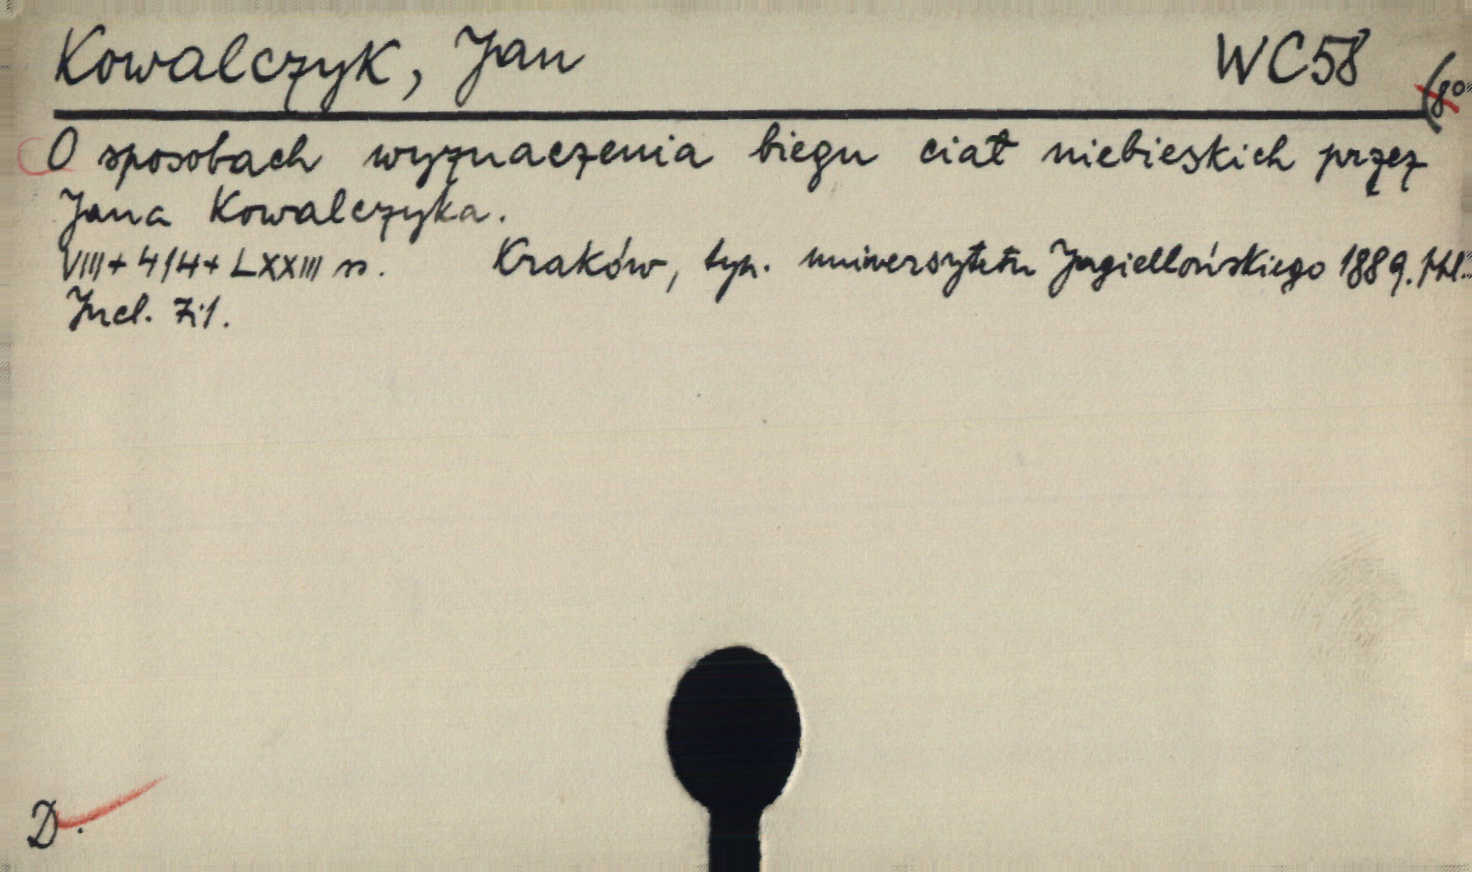 Kowalczyk, Jan WC58 (8°
O sposobach wyznaczenia biegu ciał niebieskich przez
Jana Kowalczyka.
VIII + 414 + LXXIII ss. Kraków, typ. uniwersytetu Jagiellońskiego 1889.
Incl. Zil.
D.